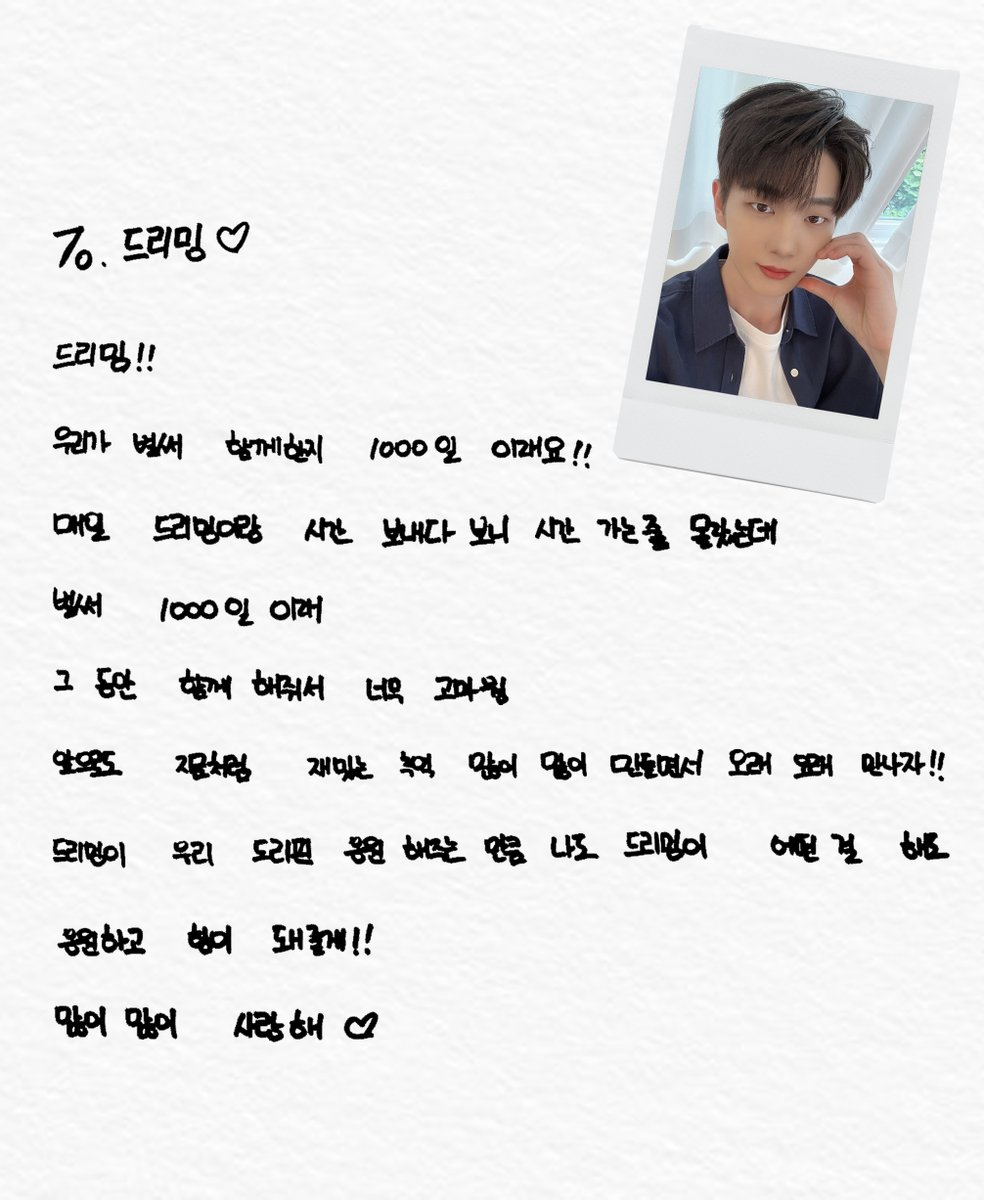 To. 드리밍♡
드리밍!!
우리가 벌써 함께한지 1000일 이래요!!
매일 드리밍이랑 시간 보내다 보니 시간 가는줄 몰랐는데
벌써 1000일 이래
그 동안 함께 해줘서 너무 고마웡
앞으로도 지금처럼 재밌는 추억 많이 많이 만들면서 오래 오래 만나자!!
드리밍이 우리 도리핀 응원 해주는 만큼 나도 드리밍이 어떤 걸 해도
응원하고 힘이 돼 줄게!!
많이 많이 사랑해♡